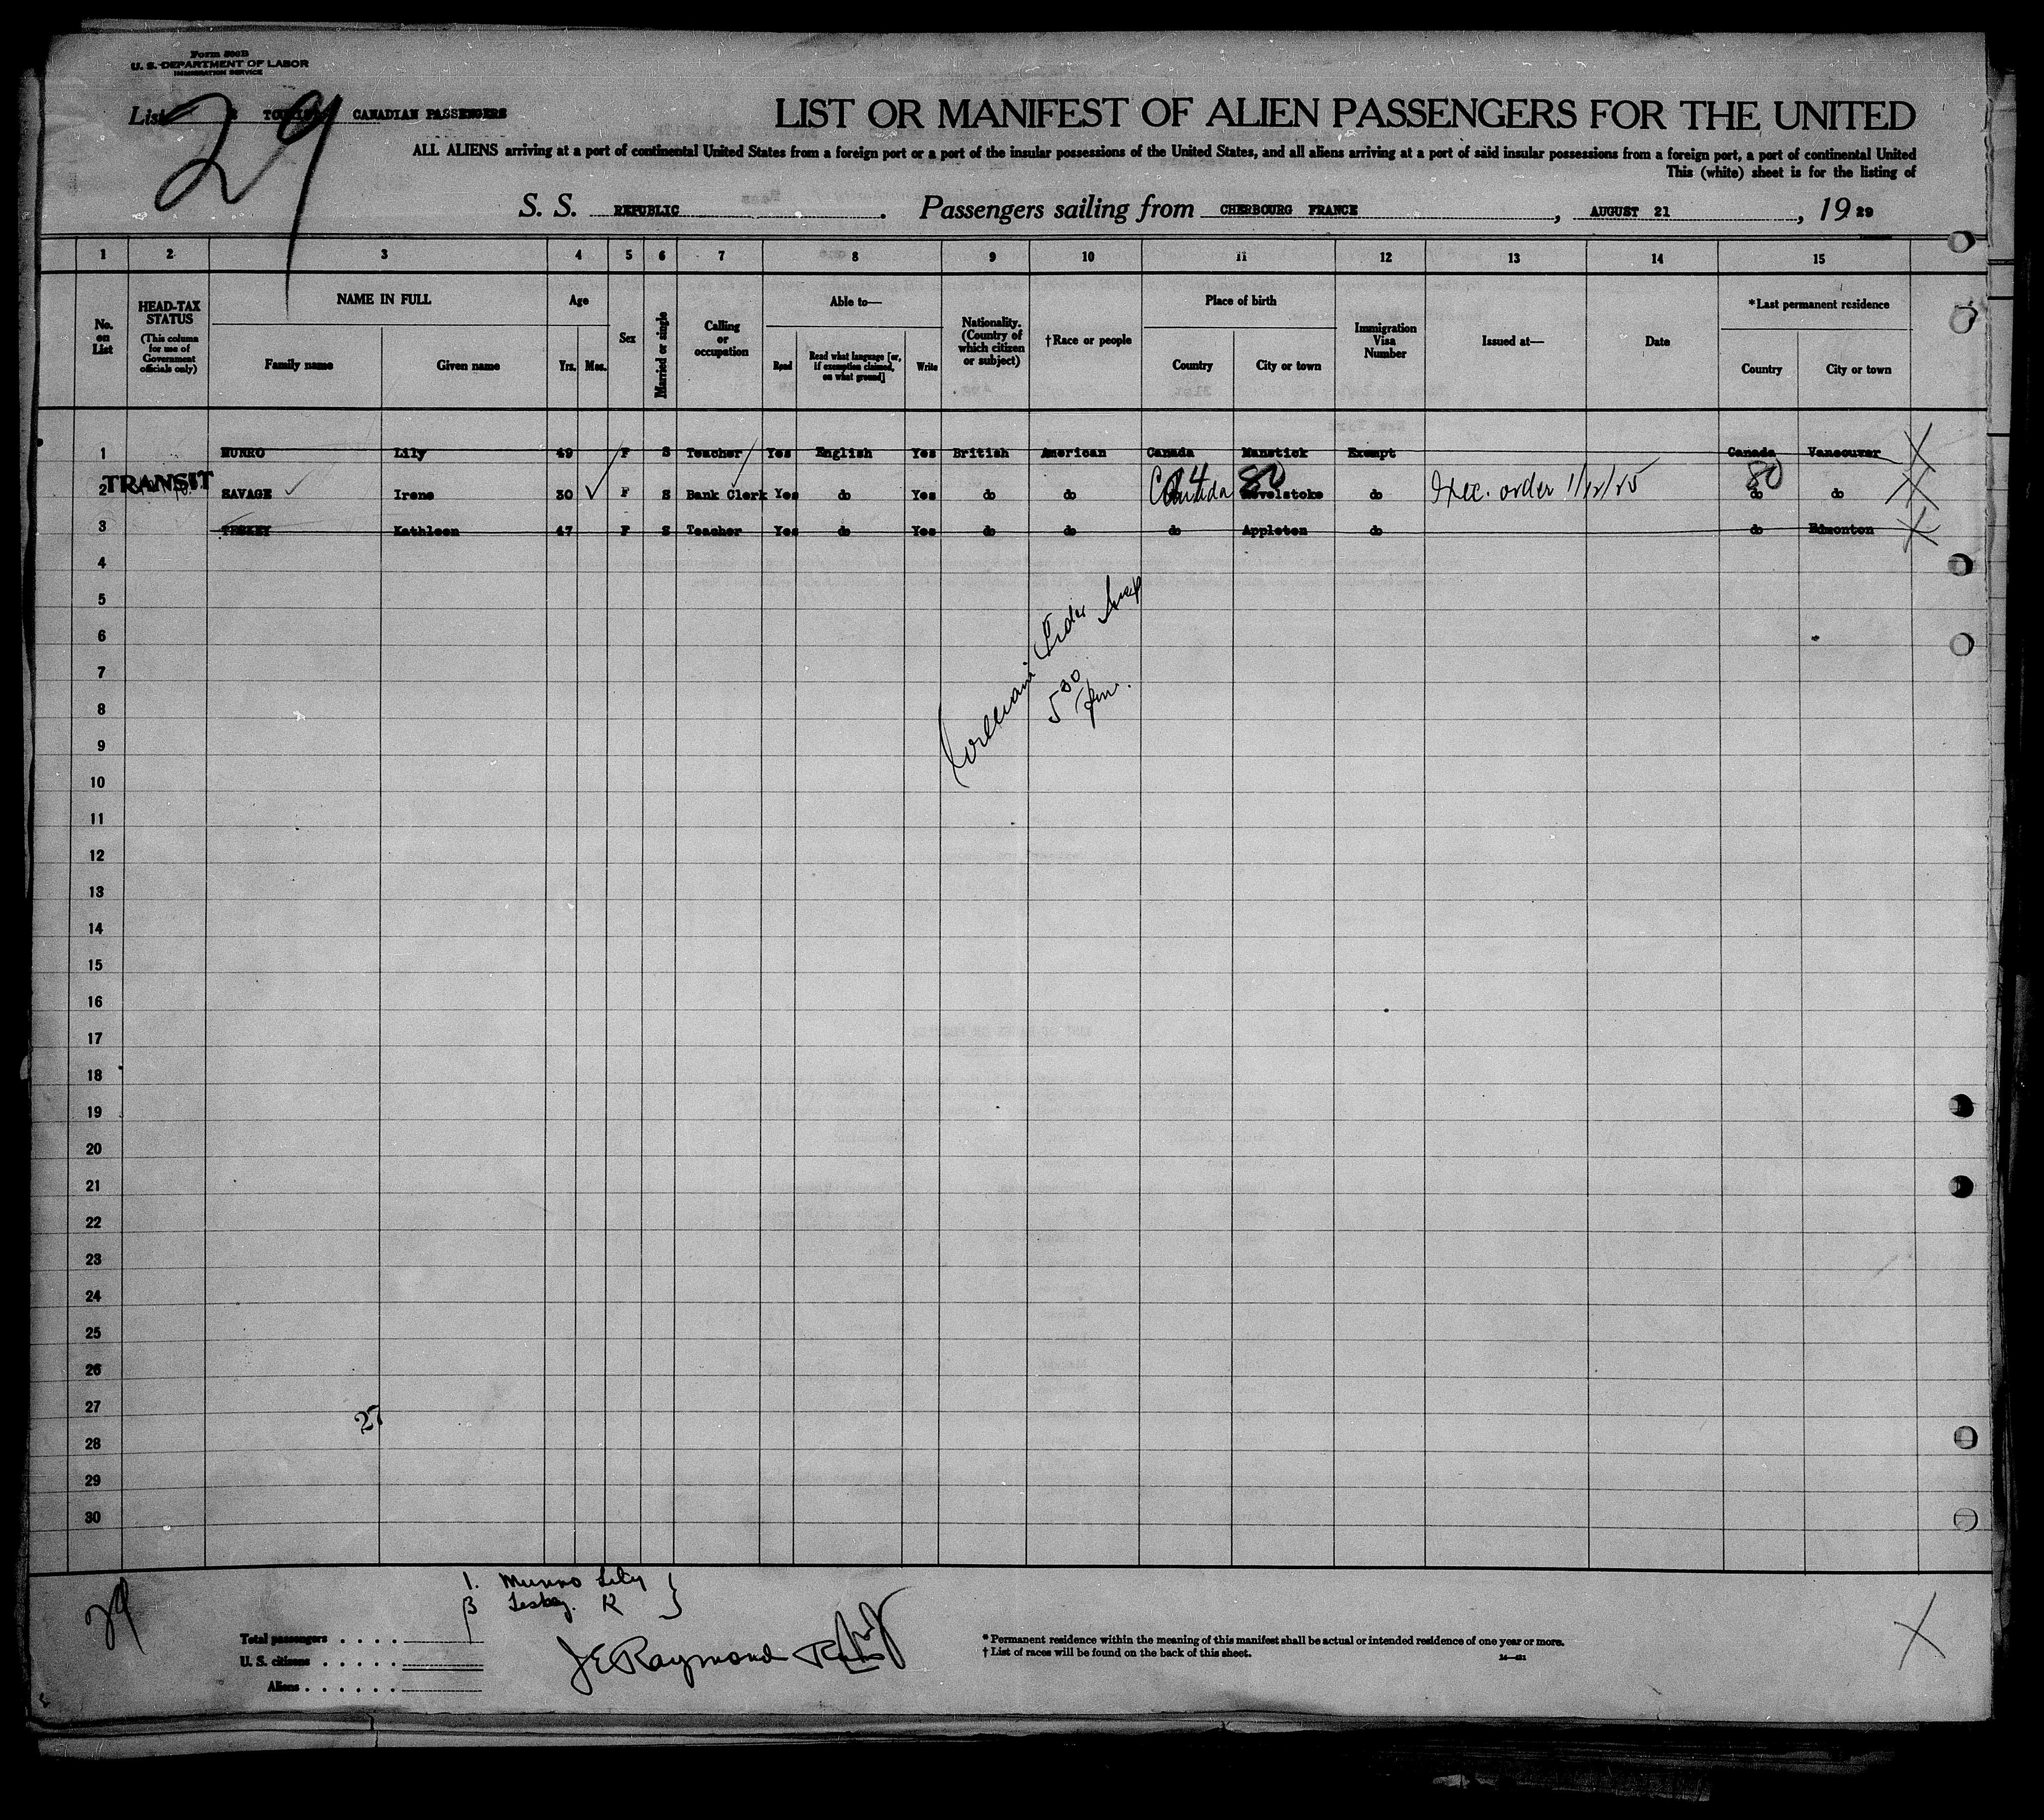 Form 500B
U. S. DEPARTMENT OF LABOR
IMMIGRATION SERVICE
List CANADIAN PASSENGERS
29
LIST OR MANIFEST OF ALIEN PASSENGERS FOR THE UNITED
ALL ALIENS arriving at a port of continental United States from a foreign port or a port of the insular possessions of the United States, and all aliens arriving at a port of said insular possessions from a foreign port, a port of continental United
This (white) sheet is for the listing of
S. S. REPUBLIC. Passengers sailing from CHERBOURG FRANCE, AUGUST 21, 1929
1 2 3 4 5 6 7 8 9 10 11 12 13 14 15
No. on List
HEAD-TAX STATUS (This column for use of Government officials only)
NAME IN FULL Family name Given name
Age Yrs. Mos.
Sex
Married or single
Calling or occupation
Able to— Read Read what language [or, if exemption claimed, on what ground] Write
Nationality. (Country of which citizen or subject)
†Race or people
Place of birth Country City or town
Immigration Visa Number
Issued at—
Date
*Last permanent residence Country City or town
1 MUNRO Lily 49 F S Teacher Yes English Yes British American Canada Manstick Exempt Canada Vancouver
TRANSIT
2 SAVAGE Irene 30 F S Bank Clerk Yes do Yes do do Canada 80 Revelstoke do Exec. order 1/12/25 80 do do
3 TESKEY Kathleen 47 F S Teacher Yes do Yes do do do Appleton do do Edmonton
4
5
6
7
8
9
5 30 pm.
10
11
12
13
14
15
16
17
18
19
20
21
22
23
24
25
26
27
27
28
29
30
29
1. Munro Lily
3 Teskey. K
Total passengers
U. S. citizens
Aliens
J E Raymond
* Permanent residence within the meaning of this manifest shall be actual or intended residence of one year or more.
† List of races will be found on the back of this sheet.